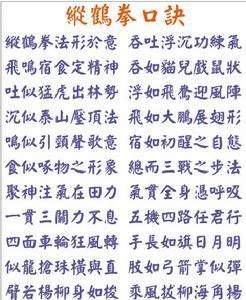 縱鶴拳口訣
縱鶴拳法形於意 吞吐浮沉功練氣
飛鳴宿食定精神 吞如貓兒戲鼠狀
吐似猛虎出林勢 浮如飛騰迎風陣
沉似泰山壓頂法 飛如大鵬展翅形
鳴似引頸聲歌意 宿如初醒之自態
食似啄物之形象 總而三戰之步法
聚神注氣在田力 氣貫全身憑呼吸
一貫三關力不息 五機四路任君行
四面車輪狂風轉 手長如旗日月明
似龍搶珠橫與直 肢如弓箭掌似彈
臂若楊柳身如梭 乘風拔柳海角揚